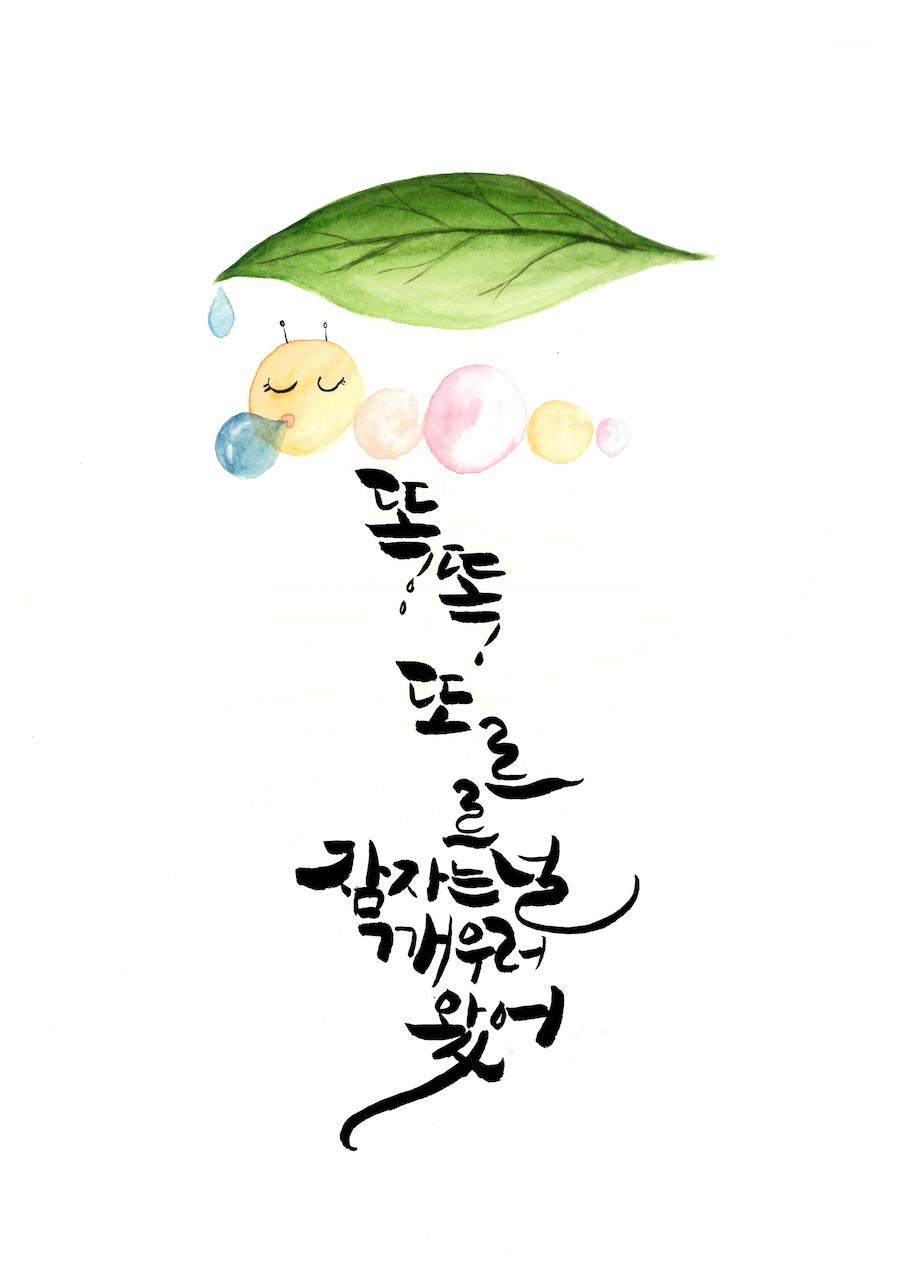 똑
똑
또르
르
잠자는 널
깨우러
왔어